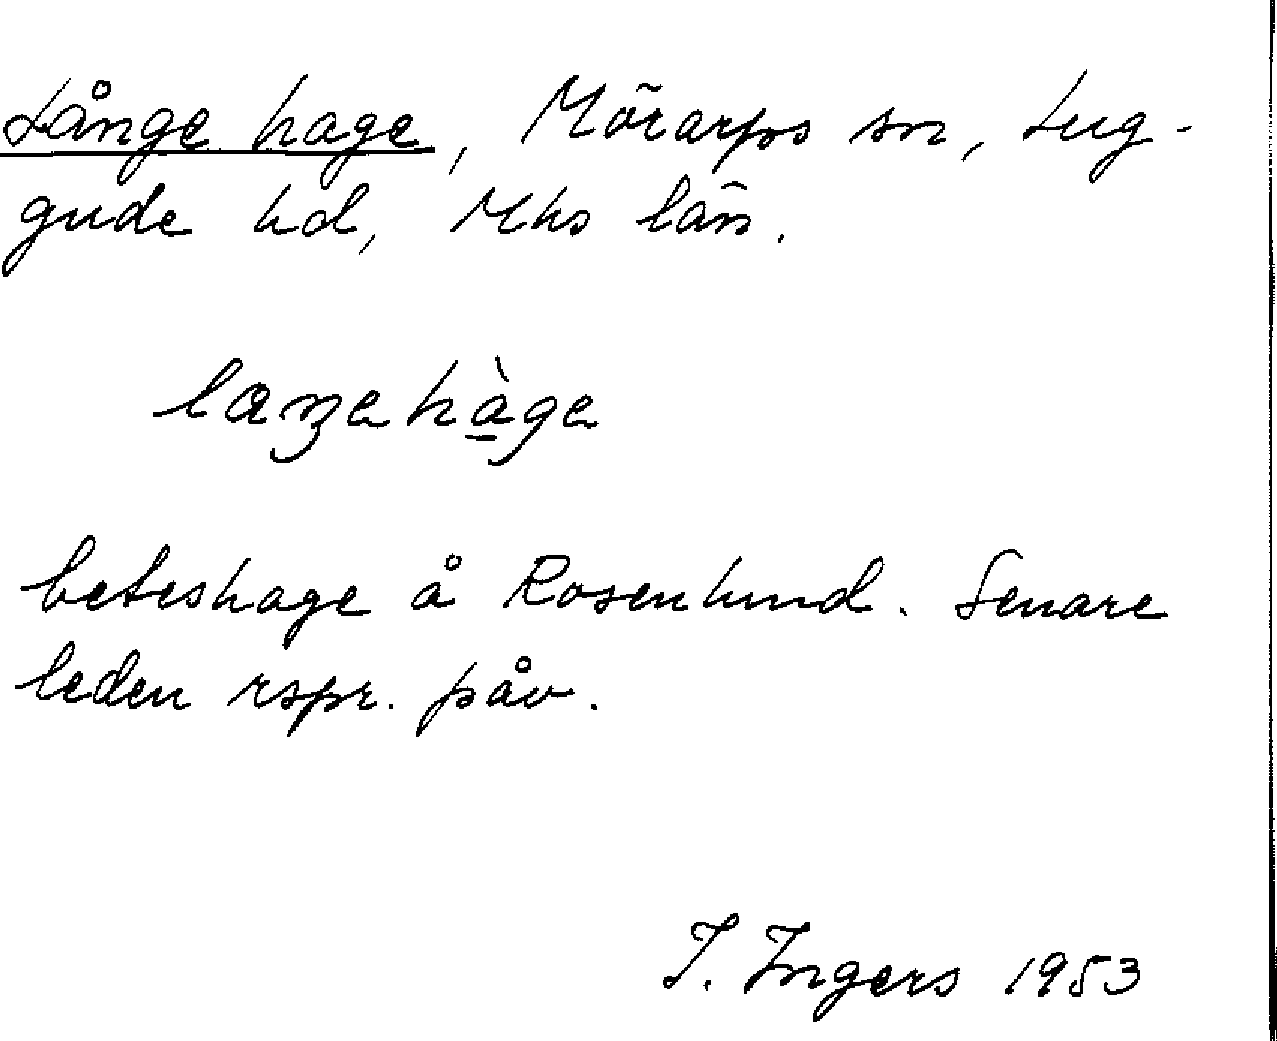 Långe hage, Mörarps sn, Lug-
gude hd, Mhs län.
laŋehàge
beteshage å Rosenlund. Senare
leden rspr. påv.
I. Ingers 1953